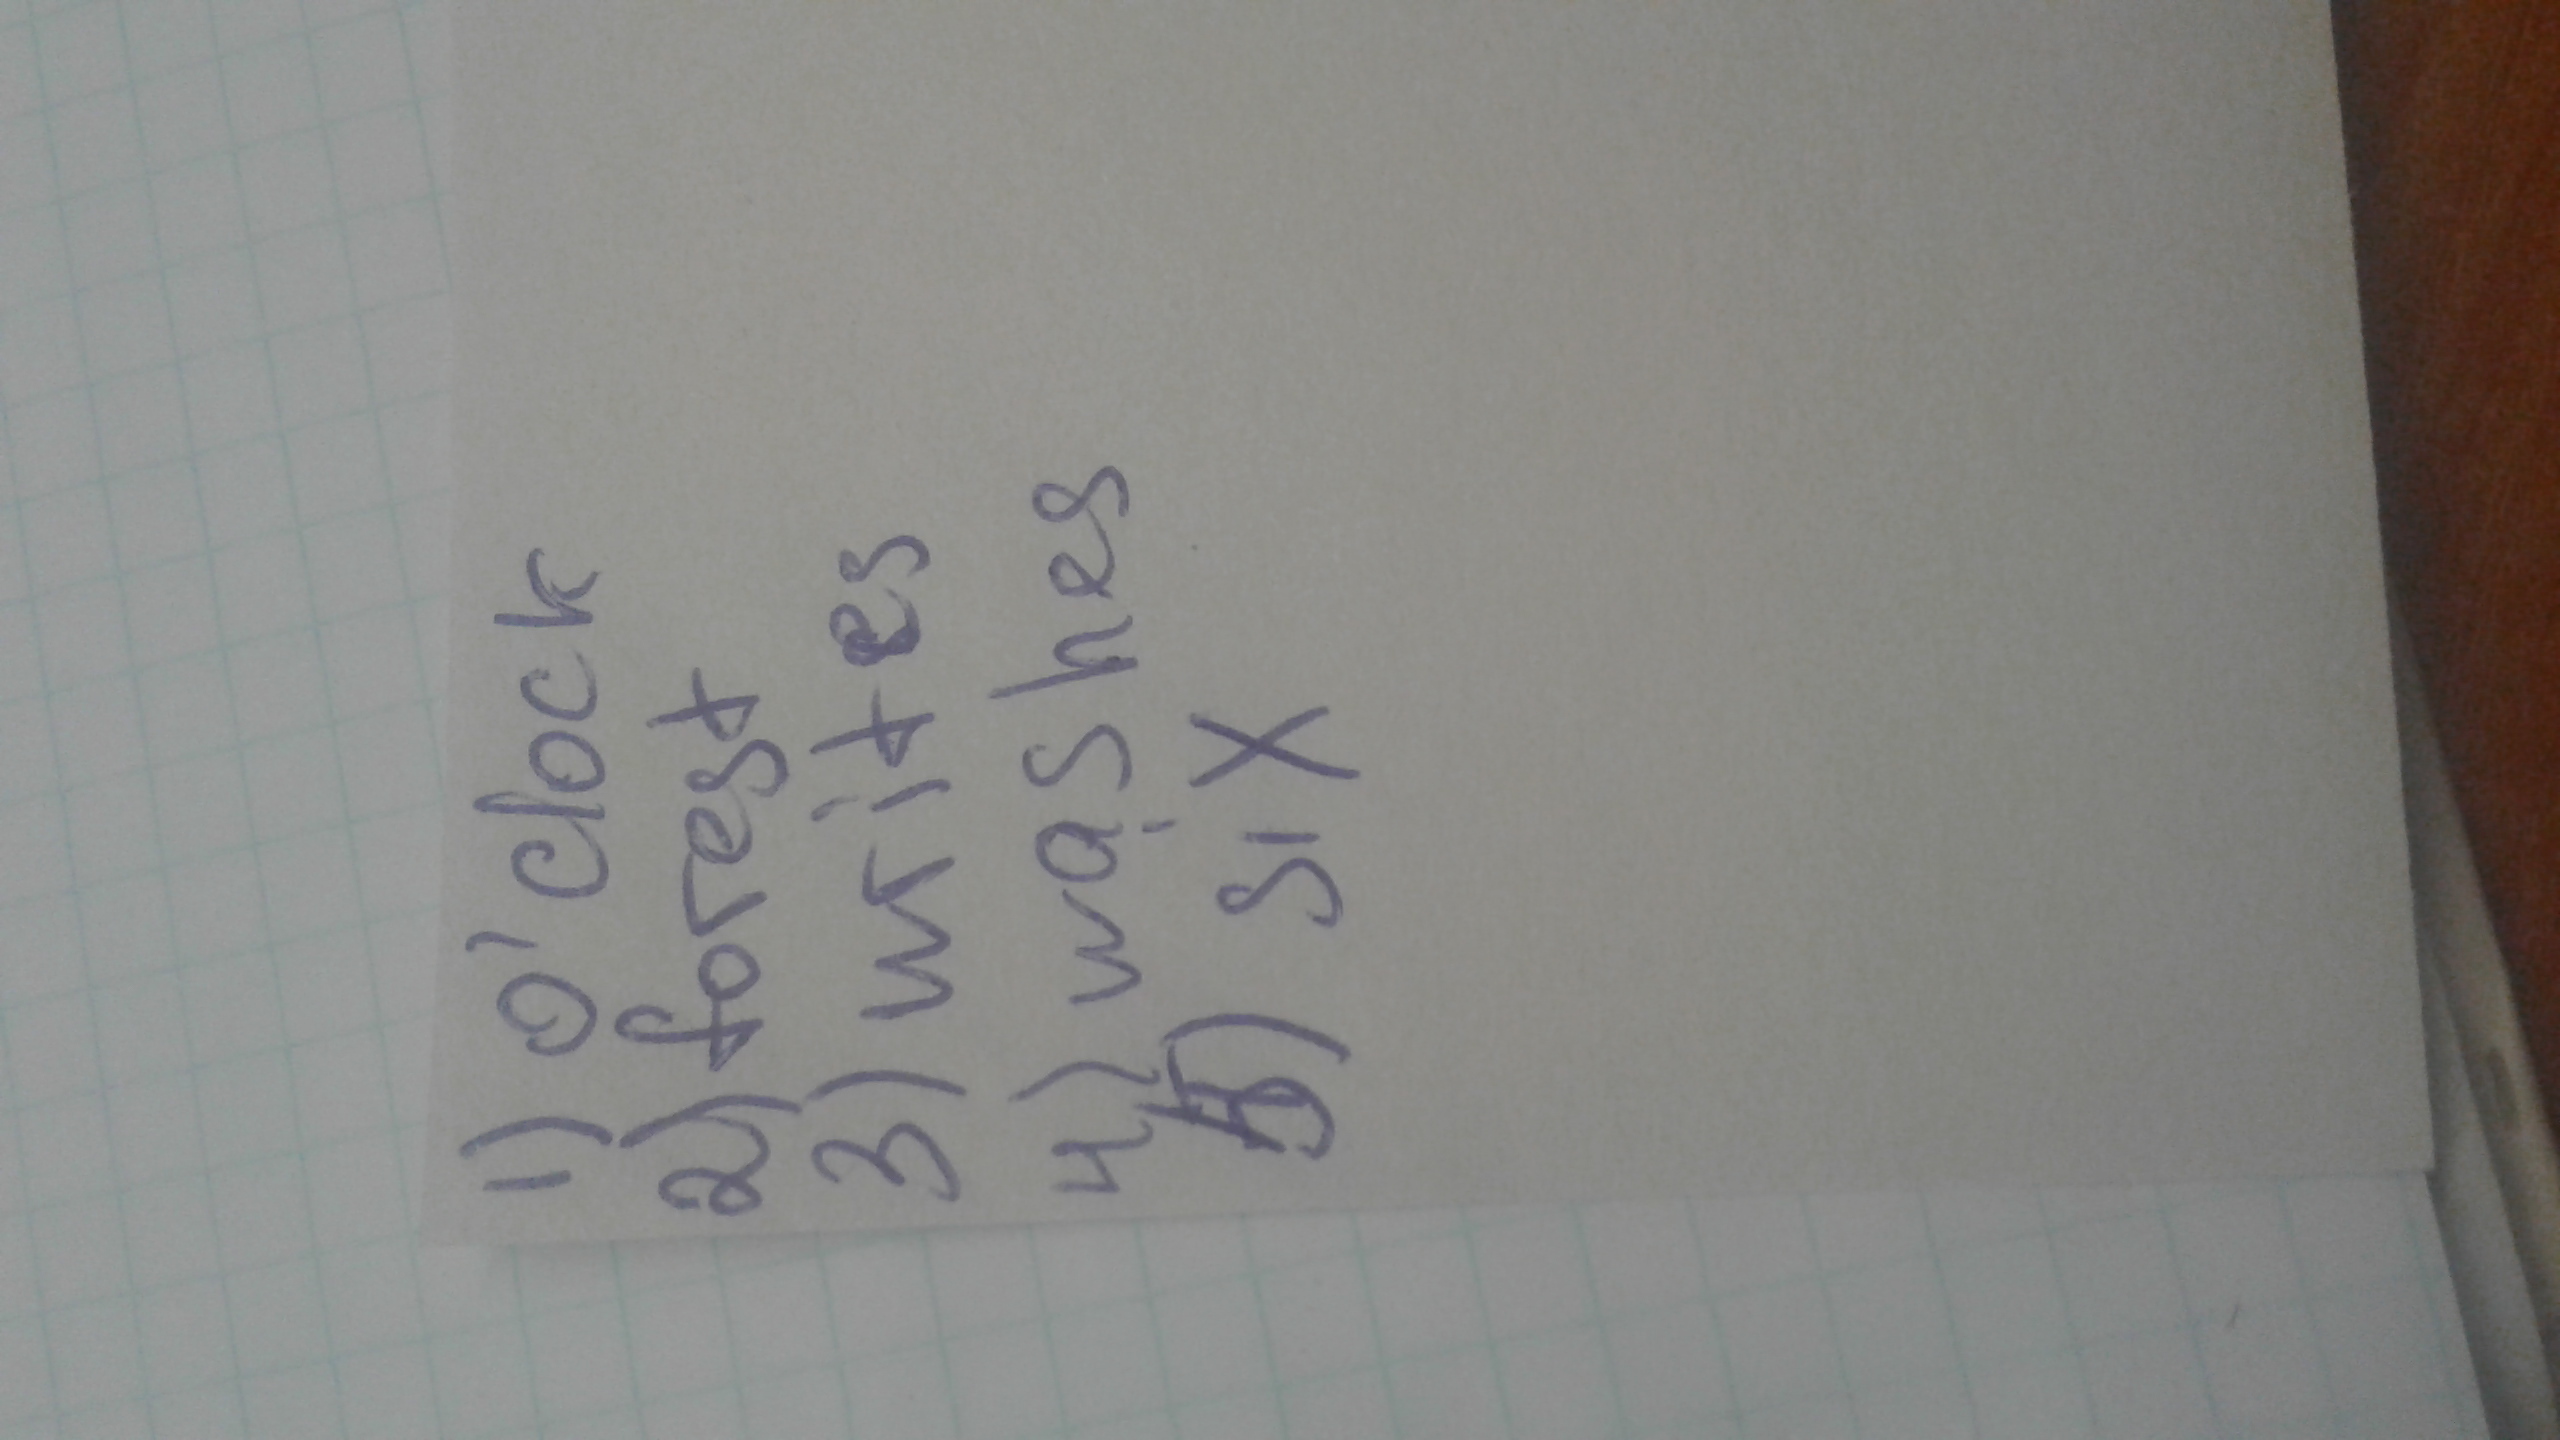 1) o'clock
2) forest
3) writes
4) washes
5) six